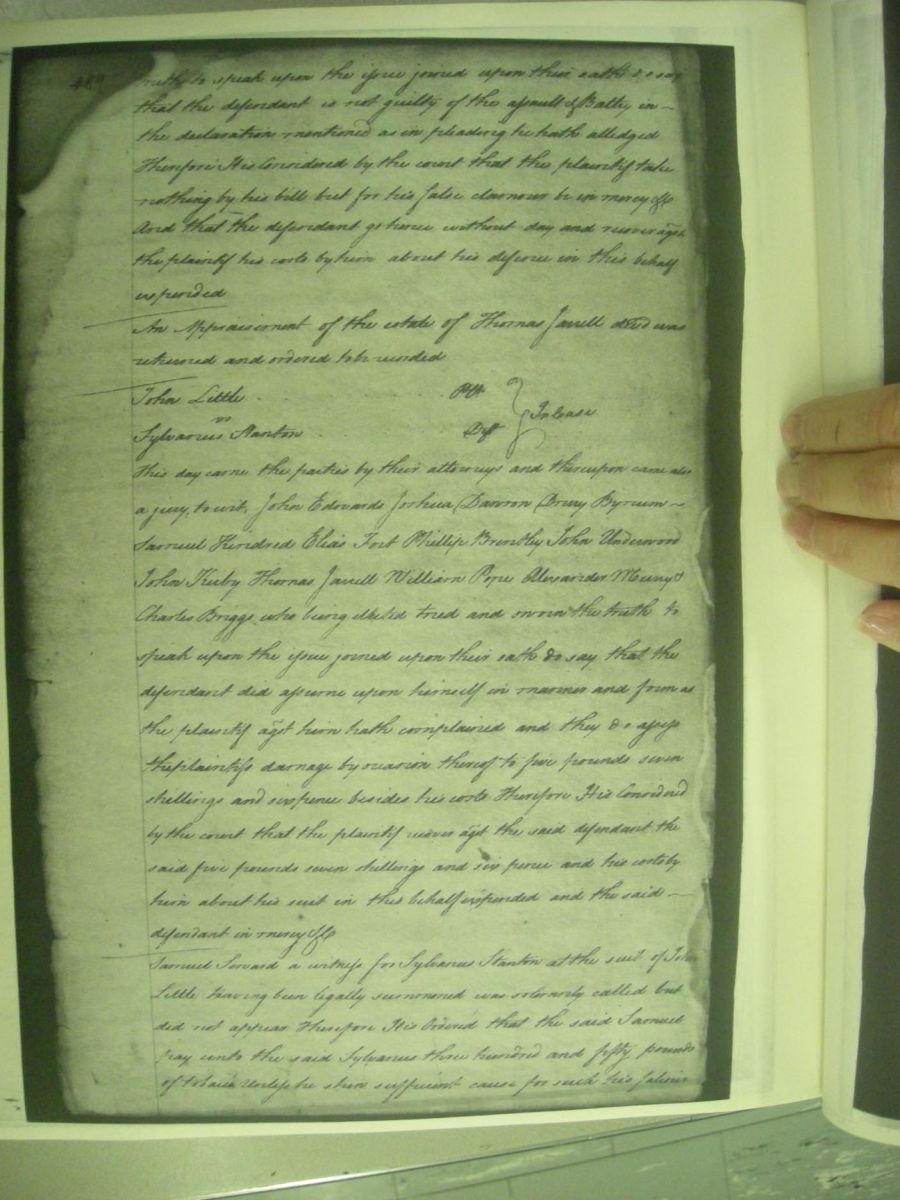 truth to speak upon the issue joined upon their oath do say
that the defendant is not guilty of the assault & Battry in —
the declaration mentioned as in pleading he hath alledged
Therefore It is Considered by the court that the plaintif take
nothing by his bill but for his false clamour be in mercy &c
And that the defendant go hence without day and recover agst
the plaintif his costs by him about his defence in this behalf
expended
An Appraisement of the estate of Thomas Jarrell decd was
returned and ordered to be recorded
John Little Plt
vs In Case
Sylvanus Stanton Deft
This day came the parties by their attorneys and thereupon came also
a jury, to wit, John Edwards Joshua Dawson Drury Byrum —
Samuel Kindred Elias Fort Phillip Brantley John Underwood
John Kirby Thomas Jarrell William Pope Alexander Murry &
Charles Briggs who being elected tried and sworn the truth to
speak upon the issue joined upon their oath do say that the
defendant did assume upon himself in manner and form as
the plaintif agst him hath complained and they do assess
the plaintifs damage by occasion thereof to five pounds seven
shillings and sixpence besides his costs Therefore It is Considered
by the court that the plaintif recover agst the said defendant the
said five pounds seven shillings and six pence and his costs by
him about his suit in this behalf expended and the said —
defendant in mercy &c
Samuel a witness for Sylvanus Stanton at the suit of John
Little having been legally summoned was solemnly called but
did not appear Therefore It is Ordered that the said Samuel
pay unto the said Sylvanus three hundred and fifty pounds
of tobacco Unless he shew sufficient cause for such his failure